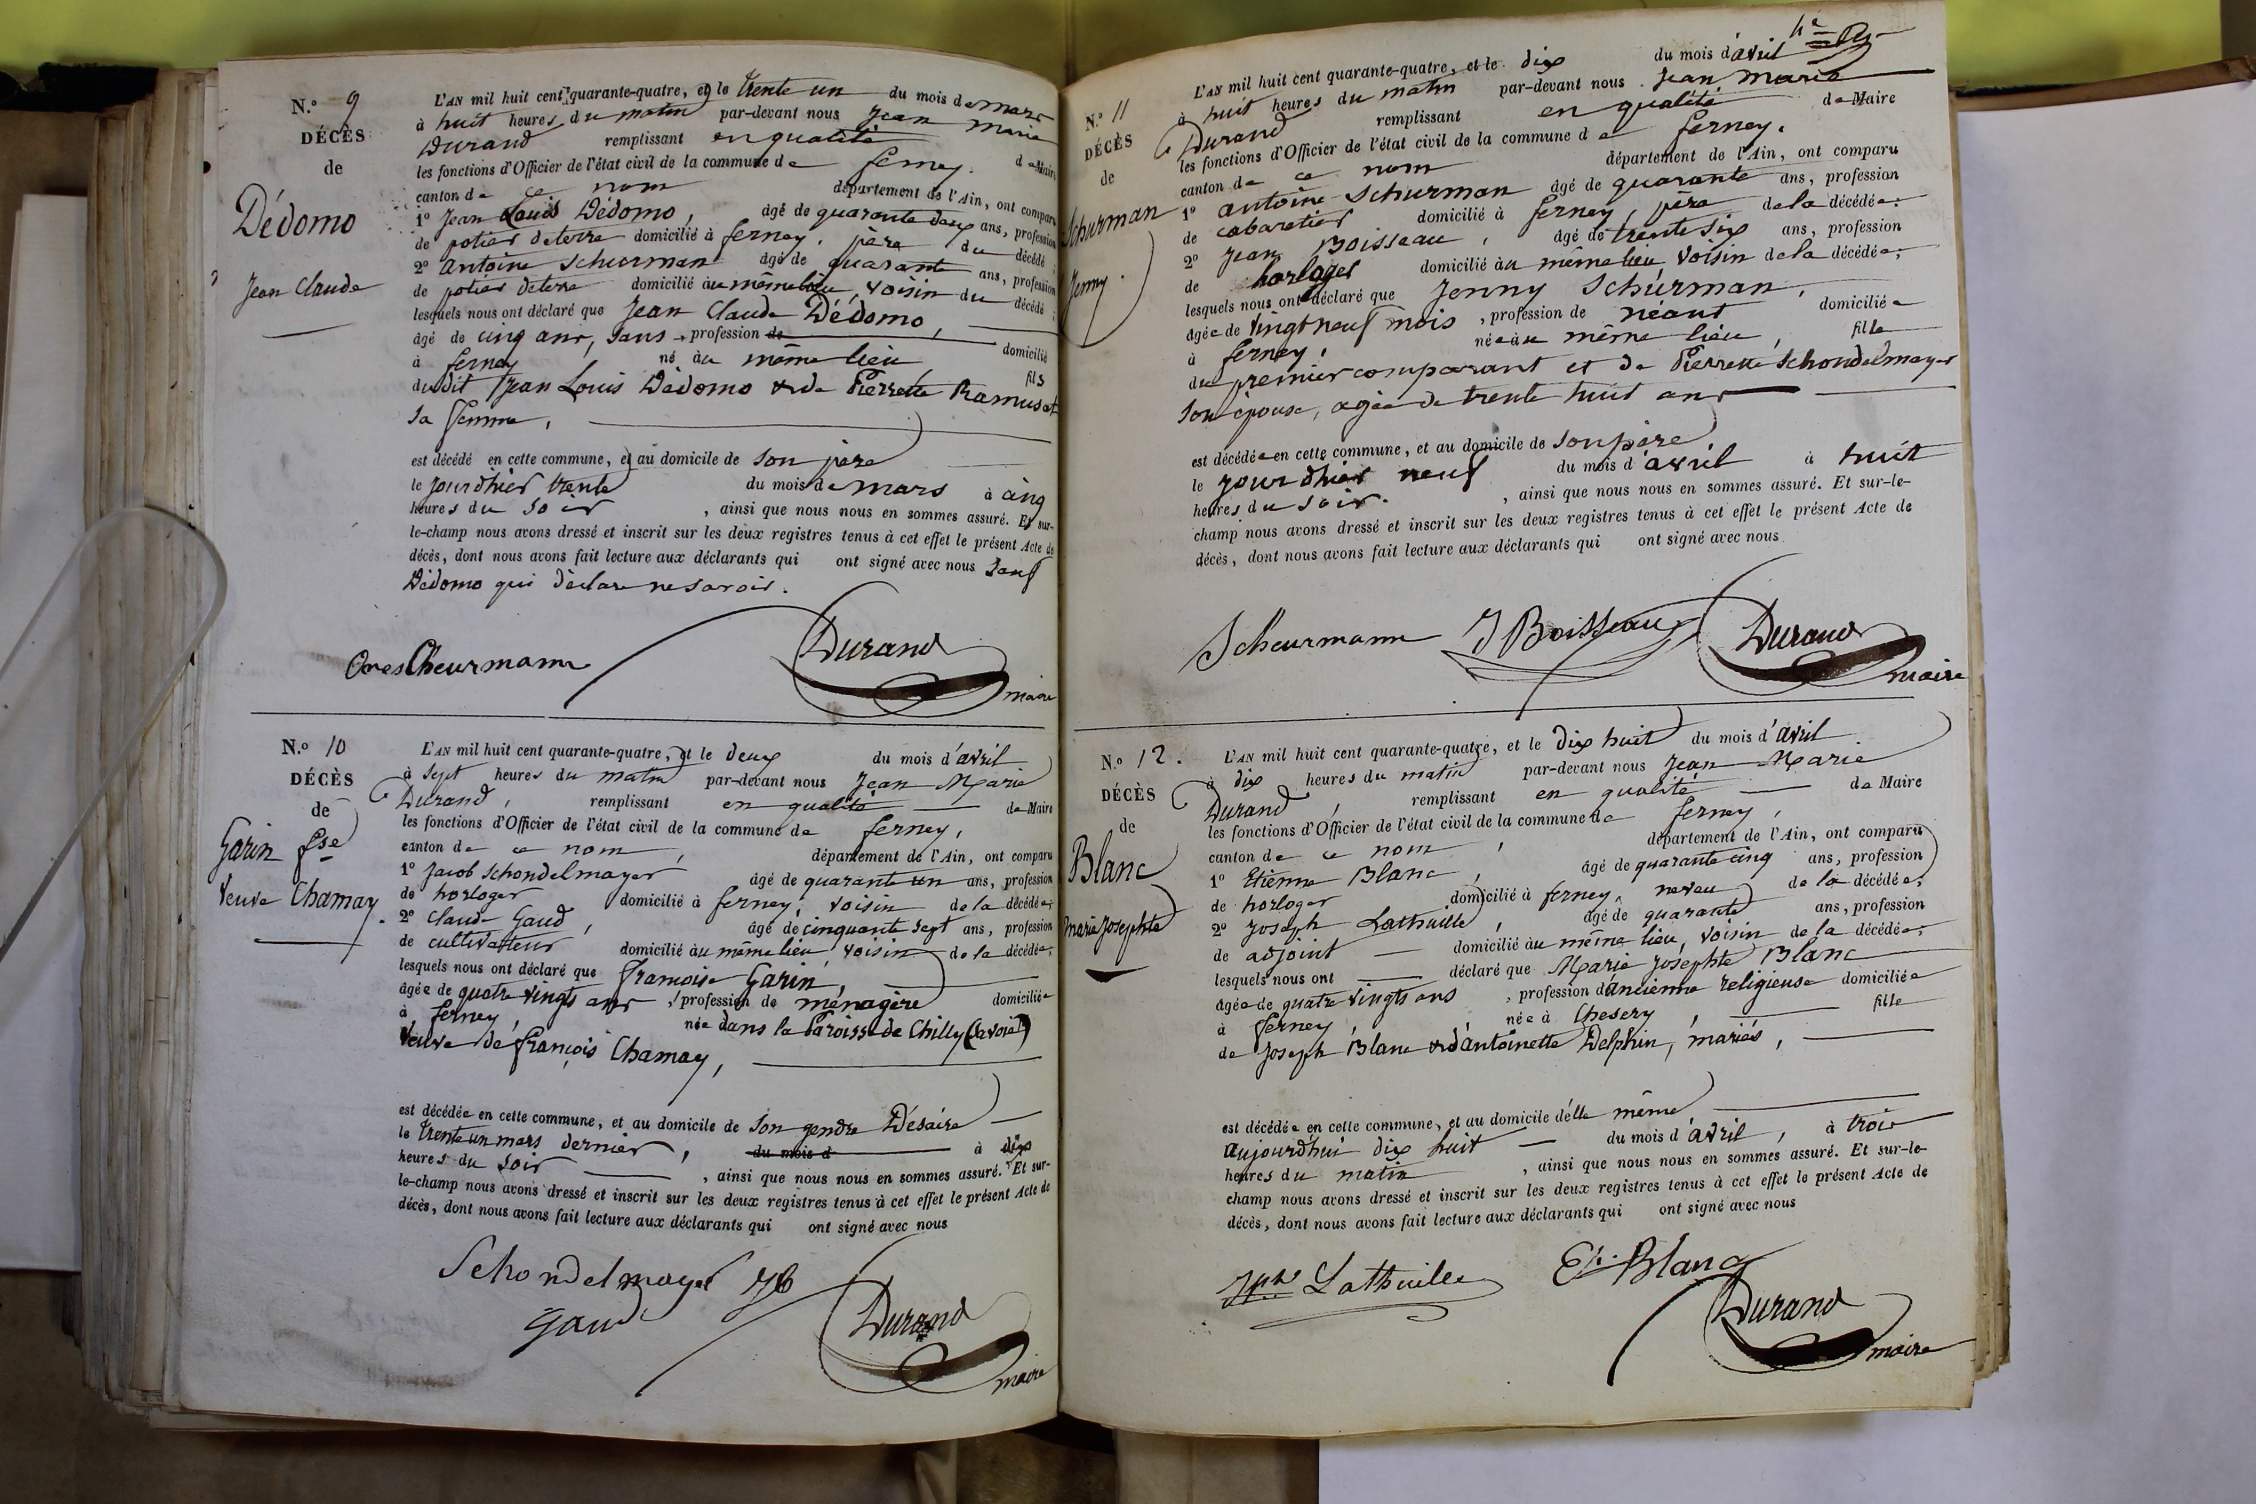 N.o 9
DÉCÈS
de
Dédomo
Jean Claude
L'AN mil huit cent quarante-quatre, et le trente un du mois de mars
à huit heures du matin par-devant nous Jean Marie
Durand remplissant en qualité de Maire
les fonctions d'Officier de l'état civil de la commune de ferney.
canton de ce nom département de l'Ain, ont comparu
1o Jean Louis Dédomo, âgé de quarante deux ans, profession
de potier de terre domicilié à ferney, père du décédé;
2o Antoine Schurman âgé de quarante ans, profession
de potier de terre domicilié au même lieu, voisin du décédé;
lesquels nous ont déclaré que Jean Claude Dédomo,
âgé de cinq ans, sans profession de domicilié
à ferney né au même lieu fils
dudit Jean Louis Dédomo & de Pierrette Ramusat
sa femme,
est décédé en cette commune, et au domicile de son père
le jour d'hier trente du mois de mars à cinq
heures du soir, ainsi que nous nous en sommes assuré. Et sur-
le-champ nous avons dressé et inscrit sur les deux registres tenus à cet effet le présent Acte de
décès, dont nous avons fait lecture aux déclarants qui ont signé avec nous sauf
Dédomo qui déclare ne savoir.
Scheurmann Durand
maire
N.o 10
DÉCÈS
de
Garin fse
Veuve Chamay.
L'AN mil huit cent quarante-quatre, et le deux du mois d'avril
à sept heures du matin par-devant nous Jean Marie
Durand, remplissant en qualité de Maire
les fonctions d'Officier de l'état civil de la commune de ferney,
canton de ce nom, département de l'Ain, ont comparu
1o Jacob Schondelmayer âgé de quarante un ans, profession
de horloger domicilié à ferney, voisin de la décédée;
2o Claude Gaud, âgé de cinquante sept ans, profession
de cultivateur domicilié au même lieu, voisin de la décédée;
lesquels nous ont déclaré que françoise Garin,
âgée de quatre vingts ans, profession de ménagère domiciliée
à ferney, née dans la Paroisse de Chilly (Savoie)
Veuve de françois Chamay,
est décédée en cette commune, et au domicile de son gendre Désaire
le trente un mars dernier, du mois d à dix
heures du soir, ainsi que nous nous en sommes assuré. Et sur-
le-champ nous avons dressé et inscrit sur les deux registres tenus à cet effet le présent Acte de
décès, dont nous avons fait lecture aux déclarants qui ont signé avec nous
Schondelmayer Jb
Gaud Durand
maire
N.o 11
DÉCÈS
de
Schurman
Jenny.
L'AN mil huit cent quarante-quatre, et le dix du mois d'avril
à huit heures du matin par-devant nous Jean Marie
Durand remplissant en qualité de Maire
les fonctions d'Officier de l'état civil de la commune de ferney.
canton de ce nom département de l'Ain, ont comparu
1o antoine Schurman âgé de quarante ans, profession
de cabaretier domicilié à ferney, père de la décédée;
2o Jean Boisseau, âgé de trente six ans, profession
de horloger domicilié au même lieu, voisin de la décédée;
lesquels nous ont déclaré que Jenny Schurman,
âgée de vingt neuf mois, profession de néant domiciliée
à ferney, née au même lieu, fille
du premier comparant et de Pierrette Schondelmayer
son épouse, agée de trente huit ans
est décédée en cette commune, et au domicile de son père
le jour d'hier neuf du mois d'avril à huit
heures du soir, ainsi que nous nous en sommes assuré. Et sur-le-
champ nous avons dressé et inscrit sur les deux registres tenus à cet effet le présent Acte de
décès, dont nous avons fait lecture aux déclarants qui ont signé avec nous
Scheurmann J Boisseau Durand
maire
N.o 12.
DÉCÈS
de
Blanc
marie Josephte
L'AN mil huit cent quarante-quatre, et le dix huit du mois d'avril
à dix heures du matin par-devant nous Jean Marie
Durand, remplissant en qualité de Maire
les fonctions d'Officier de l'état civil de la commune de ferney,
canton de ce nom, département de l'Ain, ont comparu
1o Etienne Blanc, âgé de quarante cinq ans, profession
de horloger domicilié à ferney, neveu de la décédée;
2o Joseph Lathuille, âgé de quarante ans, profession
de adjoint domicilié au même lieu, voisin de la décédée;
lesquels nous ont déclaré que Marie Josephte Blanc
âgée de quatre vingts ans, profession d'ancienne religieuse domiciliée
à ferney, née à Chesery, fille
de Joseph Blanc & d'antoinette Delphin, mariés,
est décédée en cette commune, et au domicile d'elle même
aujourd'hui dix huit du mois d'avril, à trois
heures du matin, ainsi que nous nous en sommes assuré. Et sur-le-
champ nous avons dressé et inscrit sur les deux registres tenus à cet effet le présent Acte de
décès, dont nous avons fait lecture aux déclarants qui ont signé avec nous
Jph Lathuille Et. Blanc
Durand
maire